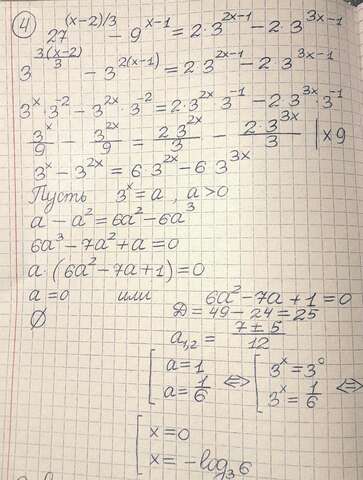 ④ 27^((x-2)/3) - 9^(x-1) = 2·3^(2x-1) - 2·3^(3x-1)
3^(3(x-2)/3) - 3^(2(x-1)) = 2·3^(2x-1) - 2·3^(3x-1)
3^x·3^(-2) - 3^(2x)·3^(-2) = 2·3^(2x)·3^(-1) - 2·3^(3x)·3^(-1)
3^x/9 - 3^(2x)/9 = 2·3^(2x)/3 - 2·3^(3x)/3 | ×9
3^x - 3^(2x) = 6·3^(2x) - 6·3^(3x)
Пусть 3^x = a, a>0
a - a² = 6a² - 6a³
6a³ - 7a² + a = 0
a·(6a² - 7a + 1) = 0
a = 0 или 6a² - 7a + 1 = 0
∅ D = 49 - 24 = 25
a₁,₂ = (7 ± 5)/12
[ a = 1 ⇔ [ 3^x = 3^0 ⇔
a = 1/6 3^x = 1/6
[ x = 0
x = -log₃6